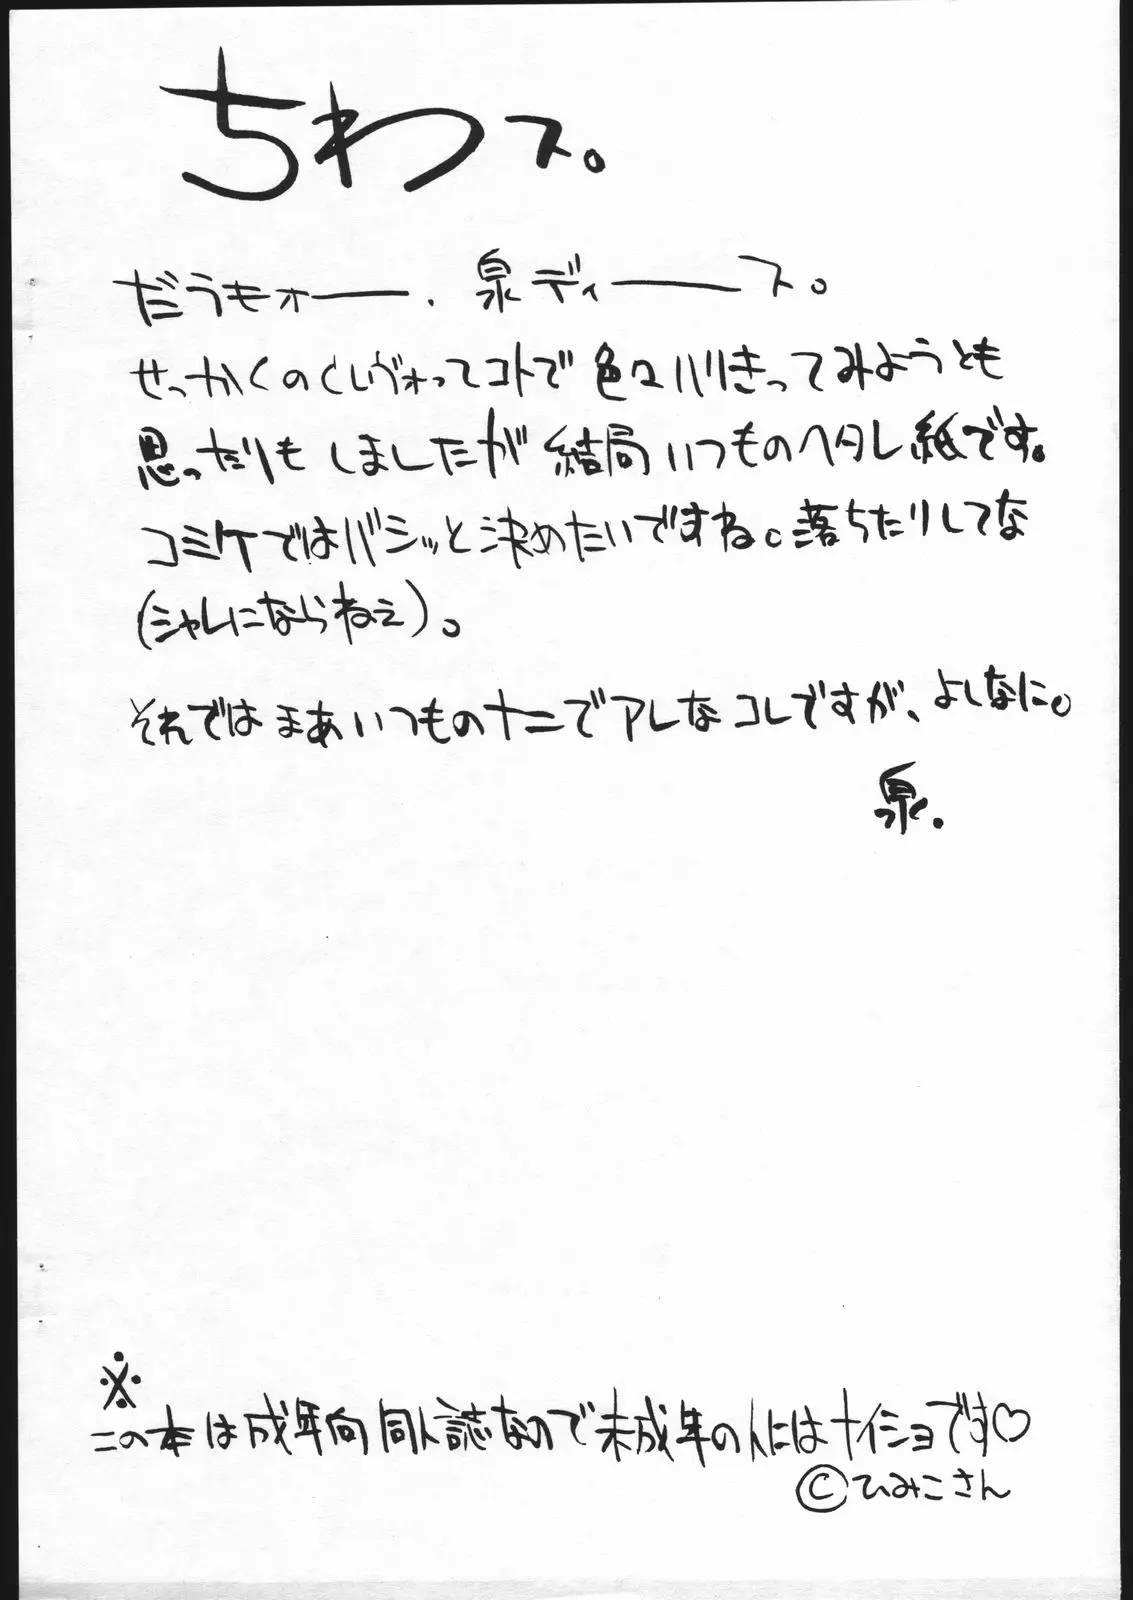 ちわス。
だうもォー. 泉ディース。
せっかくのくしヴォってコトで 色々ハリきってみようとも
思ったりもしましたが 結局いつものヘタレ紙です。
コミケではバシッと決めたいですね。落ちたりしてな
(シャレにならねぇ)。
それではまあいつものナニでアレなコレですが、よしなに。
泉.
※
この本は成年向同人誌なので未成年の人にはナイショです♡
©ひみこさん